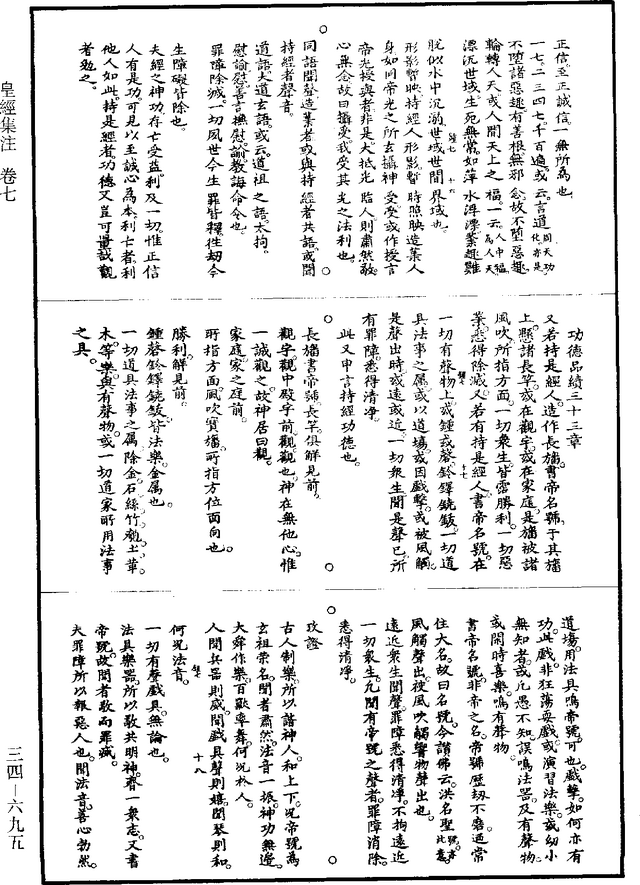 皇經集注　卷七
正信至正誠信一無所為也
一七二三四七千百過或云言道
不墮諸惡趣有善根無邪念故不墮惡趣
輪轉人天或人間天上之福一云
漂沉世域生死無常如萍水浮漂業趣難
脫似水中沉溺世域世間界域也
形影暫映持經人形影暫時照映造業人
身如同帝光之所去攝神受度或作授言
帝光授與者非是大抵光臨人則肅然敬
心無念故曰攝受我受其光之法利也
同語聞聲造業者或與持經者共語或聞
持經者聲音
道語大道玄語或云道祖之語太拘
慰諭慰善言撫慰諭教誨命令也
罪障除滅一切夙世今生罪皆釋往劫今
生障礙皆除也
夫經之神功存亡受益利及一切惟正信
人有是功可見以至誠心為本利亡者利
他人如此持是經者功德又豈可量哉觀
者勉之
功德品續三十三章
又若持是經人造作長旛書帝名號于其旛
上懸諸長竿或在觀宇或在家庭是旛被諸
風吹所指方面一切眾生皆霑勝利一切惡
業悉得除滅又若有持是經人書帝名號在
一切有聲物上或鍾或磬鈴鐸鐃鈸一切道
具法事之屬或以道場或因戲擊或被風觸
是聲出時或遠或近一切眾生聞是聲已所
有罪障悉得清淨
此又申言持經功德也
長旛書帝號長竿俱解見前
觀宇觀中殿宇前觀觀也神在無他心惟
一誠觀之故神居曰觀
家庭家之庭前
所指方面風吹寶旛所指方位面向也
勝利解見前
鍾磬鈴鐸鐃鈸皆法樂金屬也
一切道具法事之屬除金石絲竹匏土革
木等樂與有聲物或一切道家所用法事
之具
道場用法具鳴帝號可也戲擊如何亦有
功此戲非狂蕩耍戲或演習法樂或幼小
無知者或凡愚不知誤鳴法器及有聲物
或閑時喜樂鳴有聲物
書帝名號非帝之名帝號歷劫不磨通常
住大名故曰名號今諸佛云洪名聖號此意
風觸聲出被風吹觸響物聲出也
遠近眾生聞聲罪障悉得清淨不拘遠近
一切眾生凡聞有帝號之聲者罪障消除
悉得清淨
攷證
古人制樂所以諧神人和上下況帝號為
玄祖崇名聞者肅然法音一振神功無邊
大舜作樂百獸率舞何況於人
人聞兵器則威聞戲具聲則嬉聞琴則和
何況法音
一切有聲戲具無論也
法具樂器所以敬共明神齊一眾志又書
帝號故聞者敬而罪滅
大罪障所以報惡人也聞法音善心勃然
三四－六九五